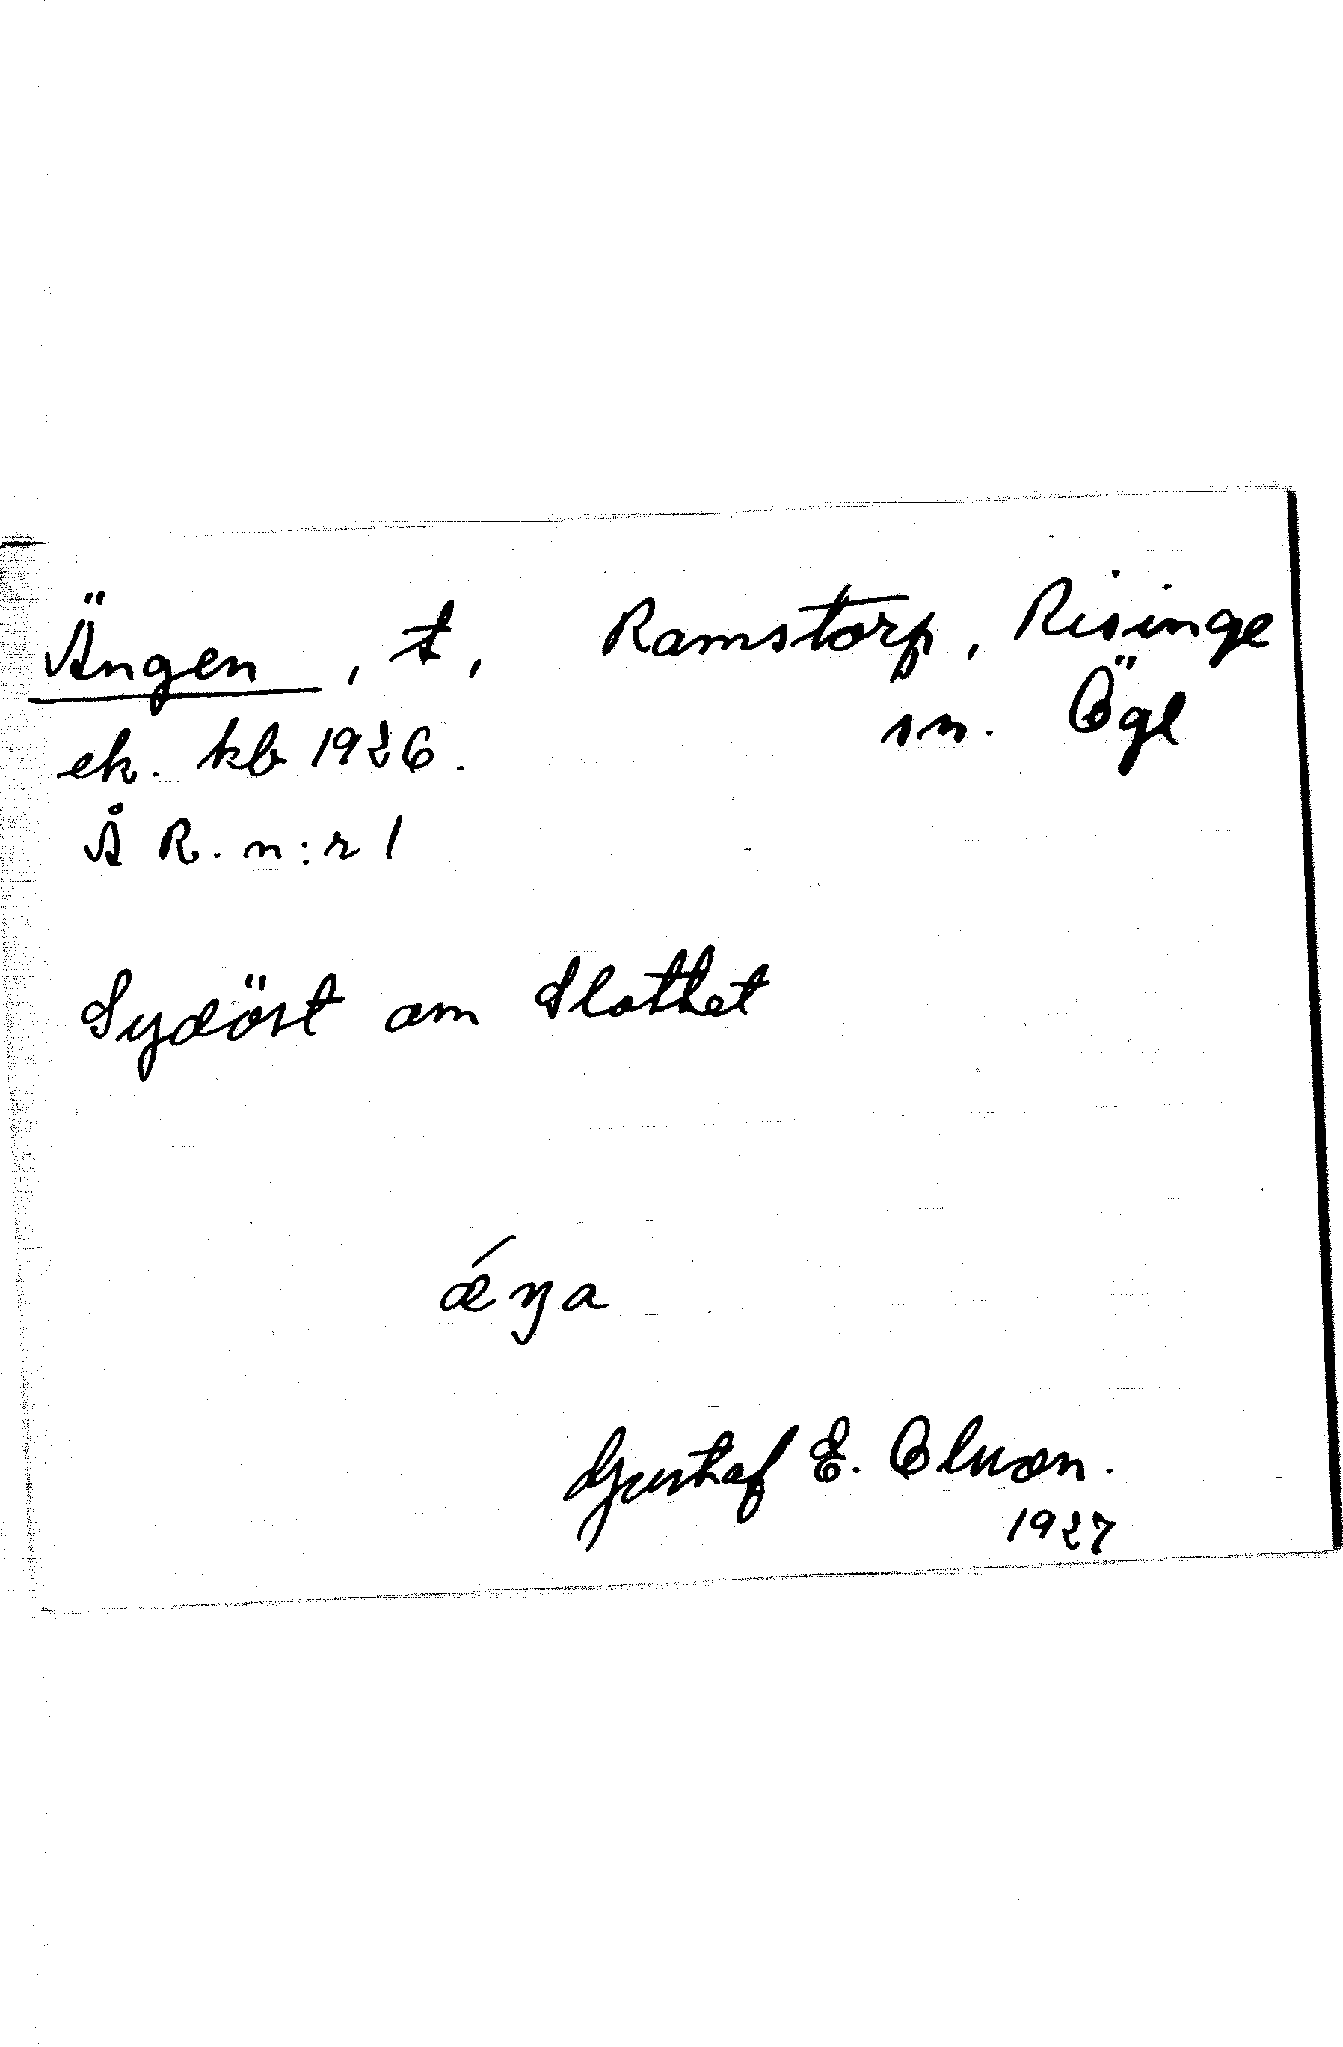 Ängen, t, Ramstorp, Risinge
sn. Ögl
ek. kb 1926.
Å R. n:r 1
Sydöst om Slottet
ǽŋa
Gustaf E. Olsson.
1927